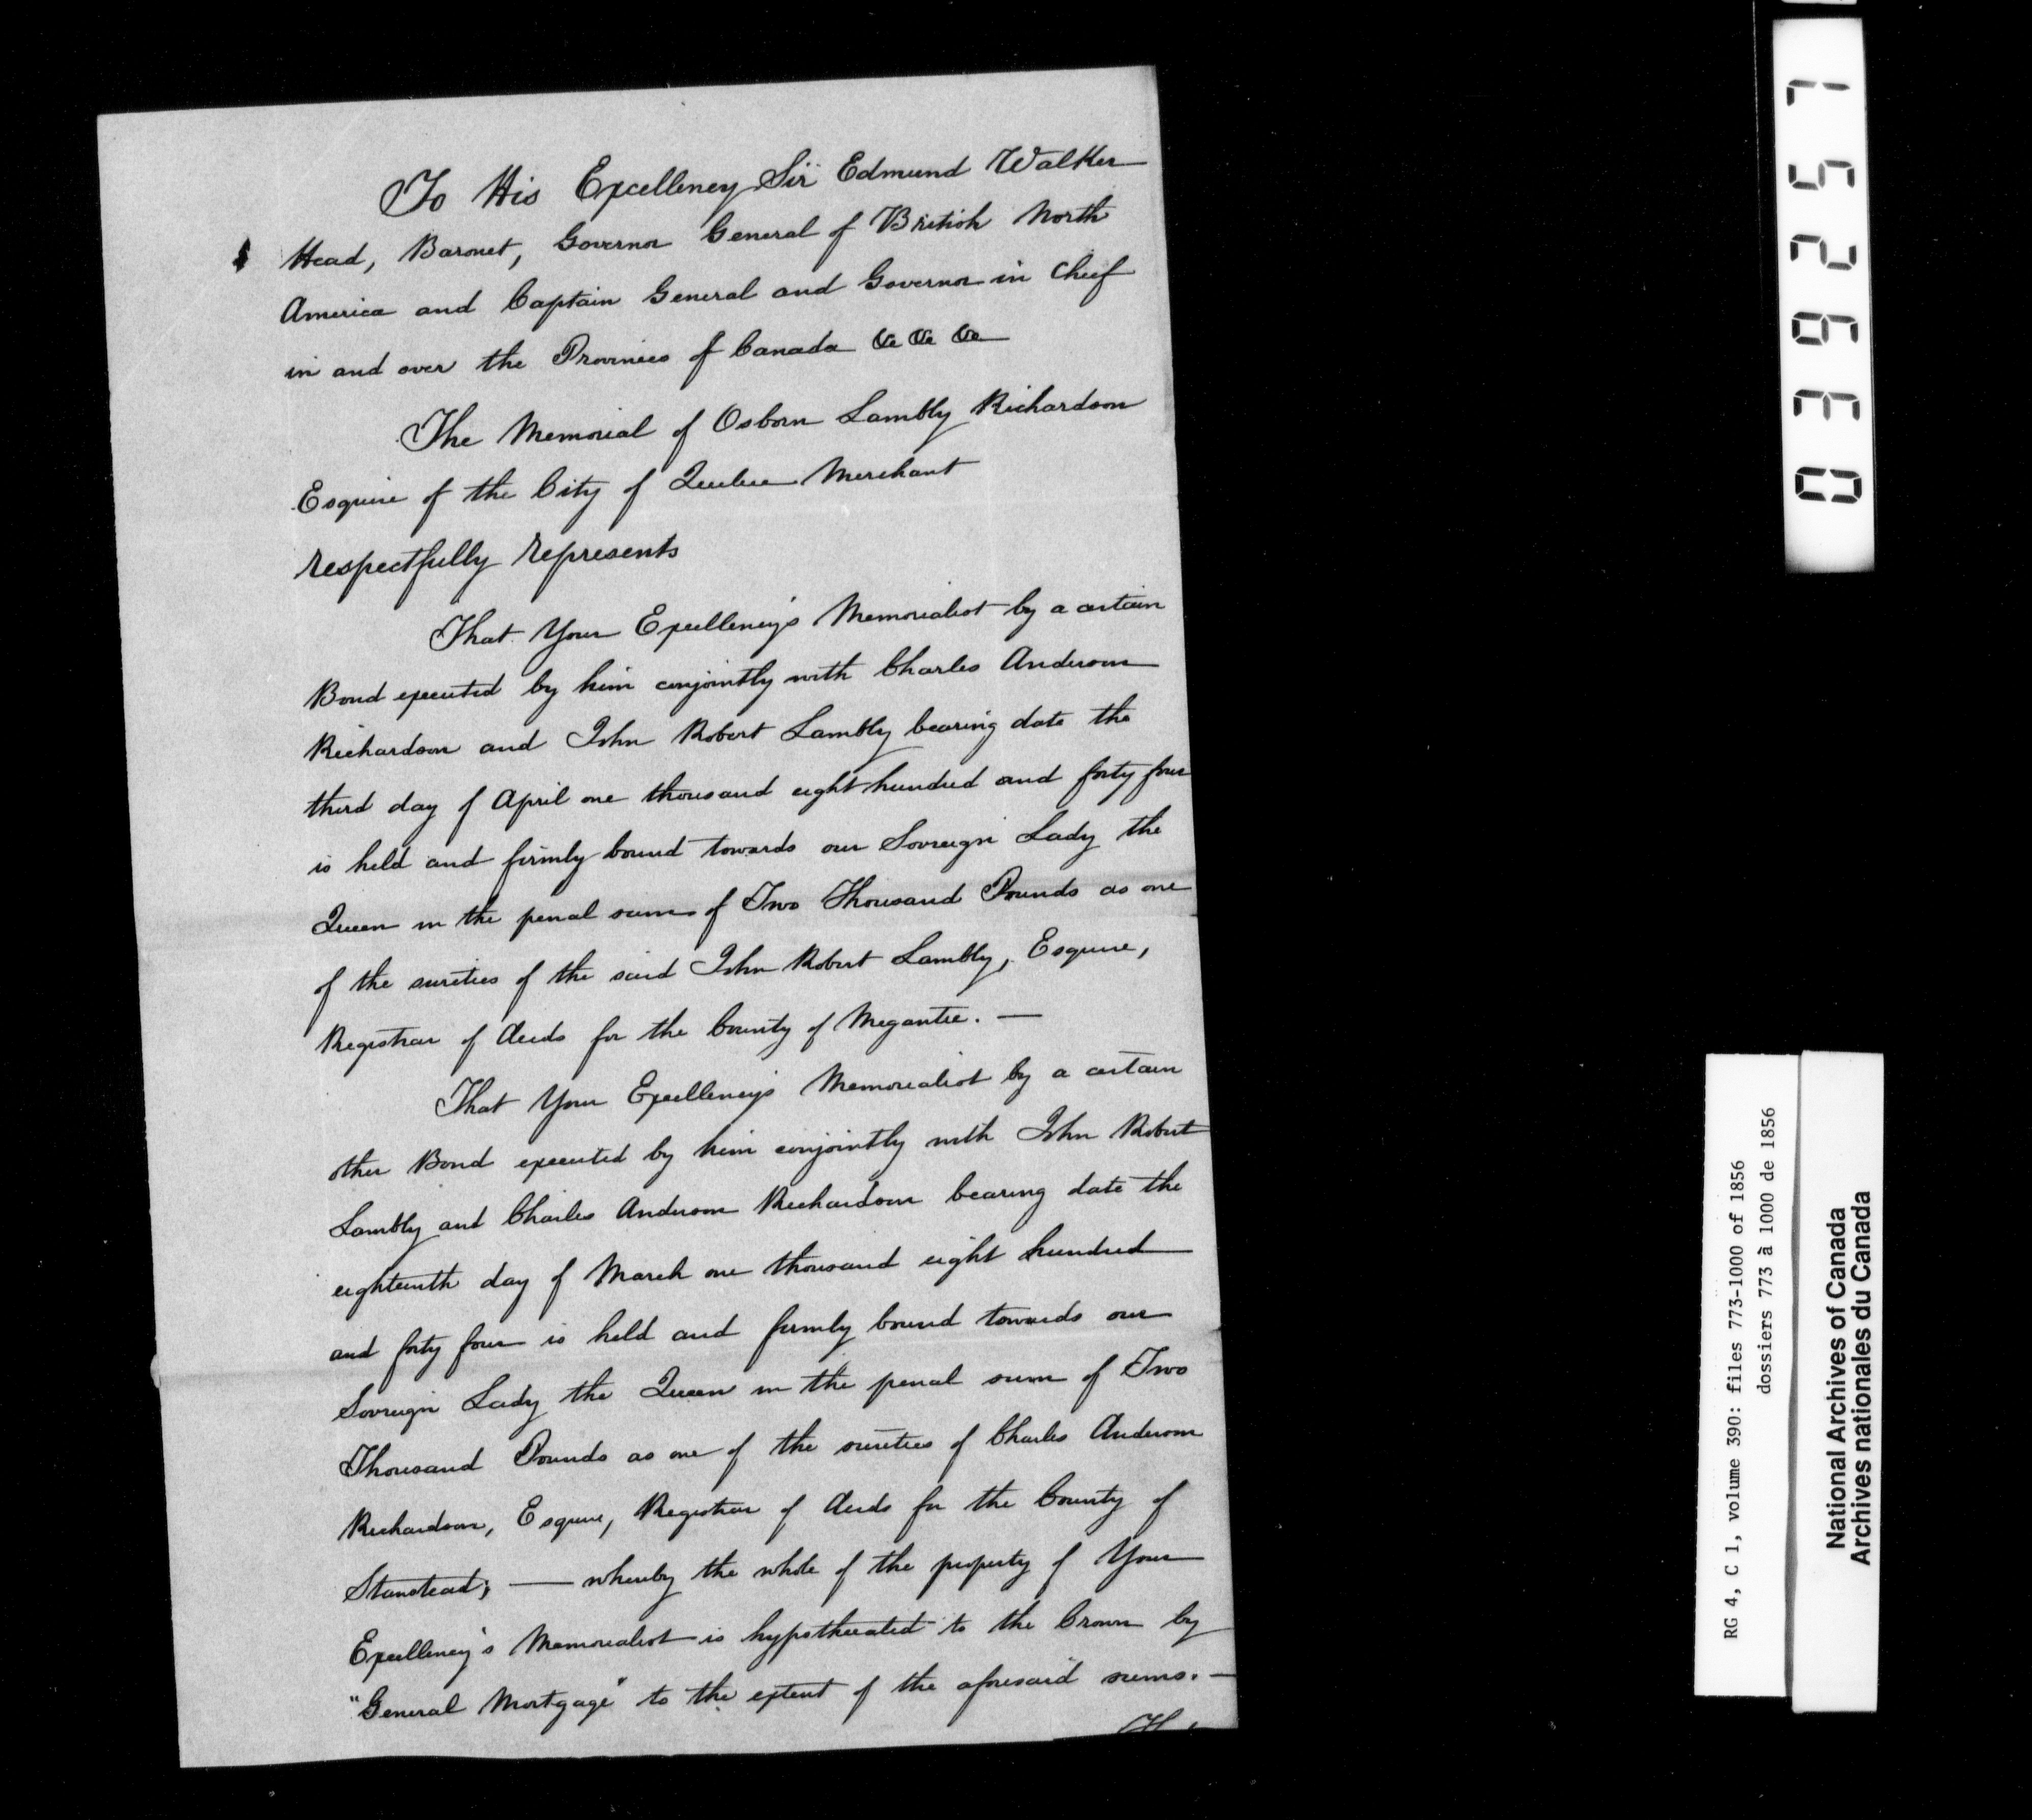 To His Excellency Sir Edmund Walker
Head, Baronet, Governor General of British North
America and Captain General and Governor in Chief
in and over the Provinces of Canada &c &c &c
The Memorial of Osborn Lambly Richardson
Esquire of the City of Quebec Merchant
respectfully represents
That Your Excellency's Memorialist by a certain
Bond executed by him conjointly with Charles Anderson
Richardson and John Robert Lambly bearing date the
third day of April one thousand eight hundred and forty four
is held and firmly bound towards our Sovreign Lady the
Queen in the penal sum of Two Thousand Pounds as one
of the sureties of the said John Robert Lambly, Esquire,
Registrar of deeds for the County of Megantic. —
That Your Excellency's Memorialist by a certain
other Bond executed by him conjointly with John Robert
Lambly and Charles Anderson Richardson bearing date the
eighteenth day of March one thousand eight hundred
and forty four is held and firmly bound towards our
Sovreign Lady the Queen in the penal sum of Two
Thousand Pounds as one of the sureties of Charles Anderson
Richardson, Esquire, Registrar of deeds for the County of
Stanstead; — whereby the whole of the property of Your
Excellency's Memorialist is hypothecated to the Crown by
"General Mortgage" to the extent of the aforesaid sums. —
039257
RG 4, C 1, volume 390: files 773-1000 of 1856
dossiers 773 à 1000 de 1856
National Archives of Canada
Archives nationales du Canada